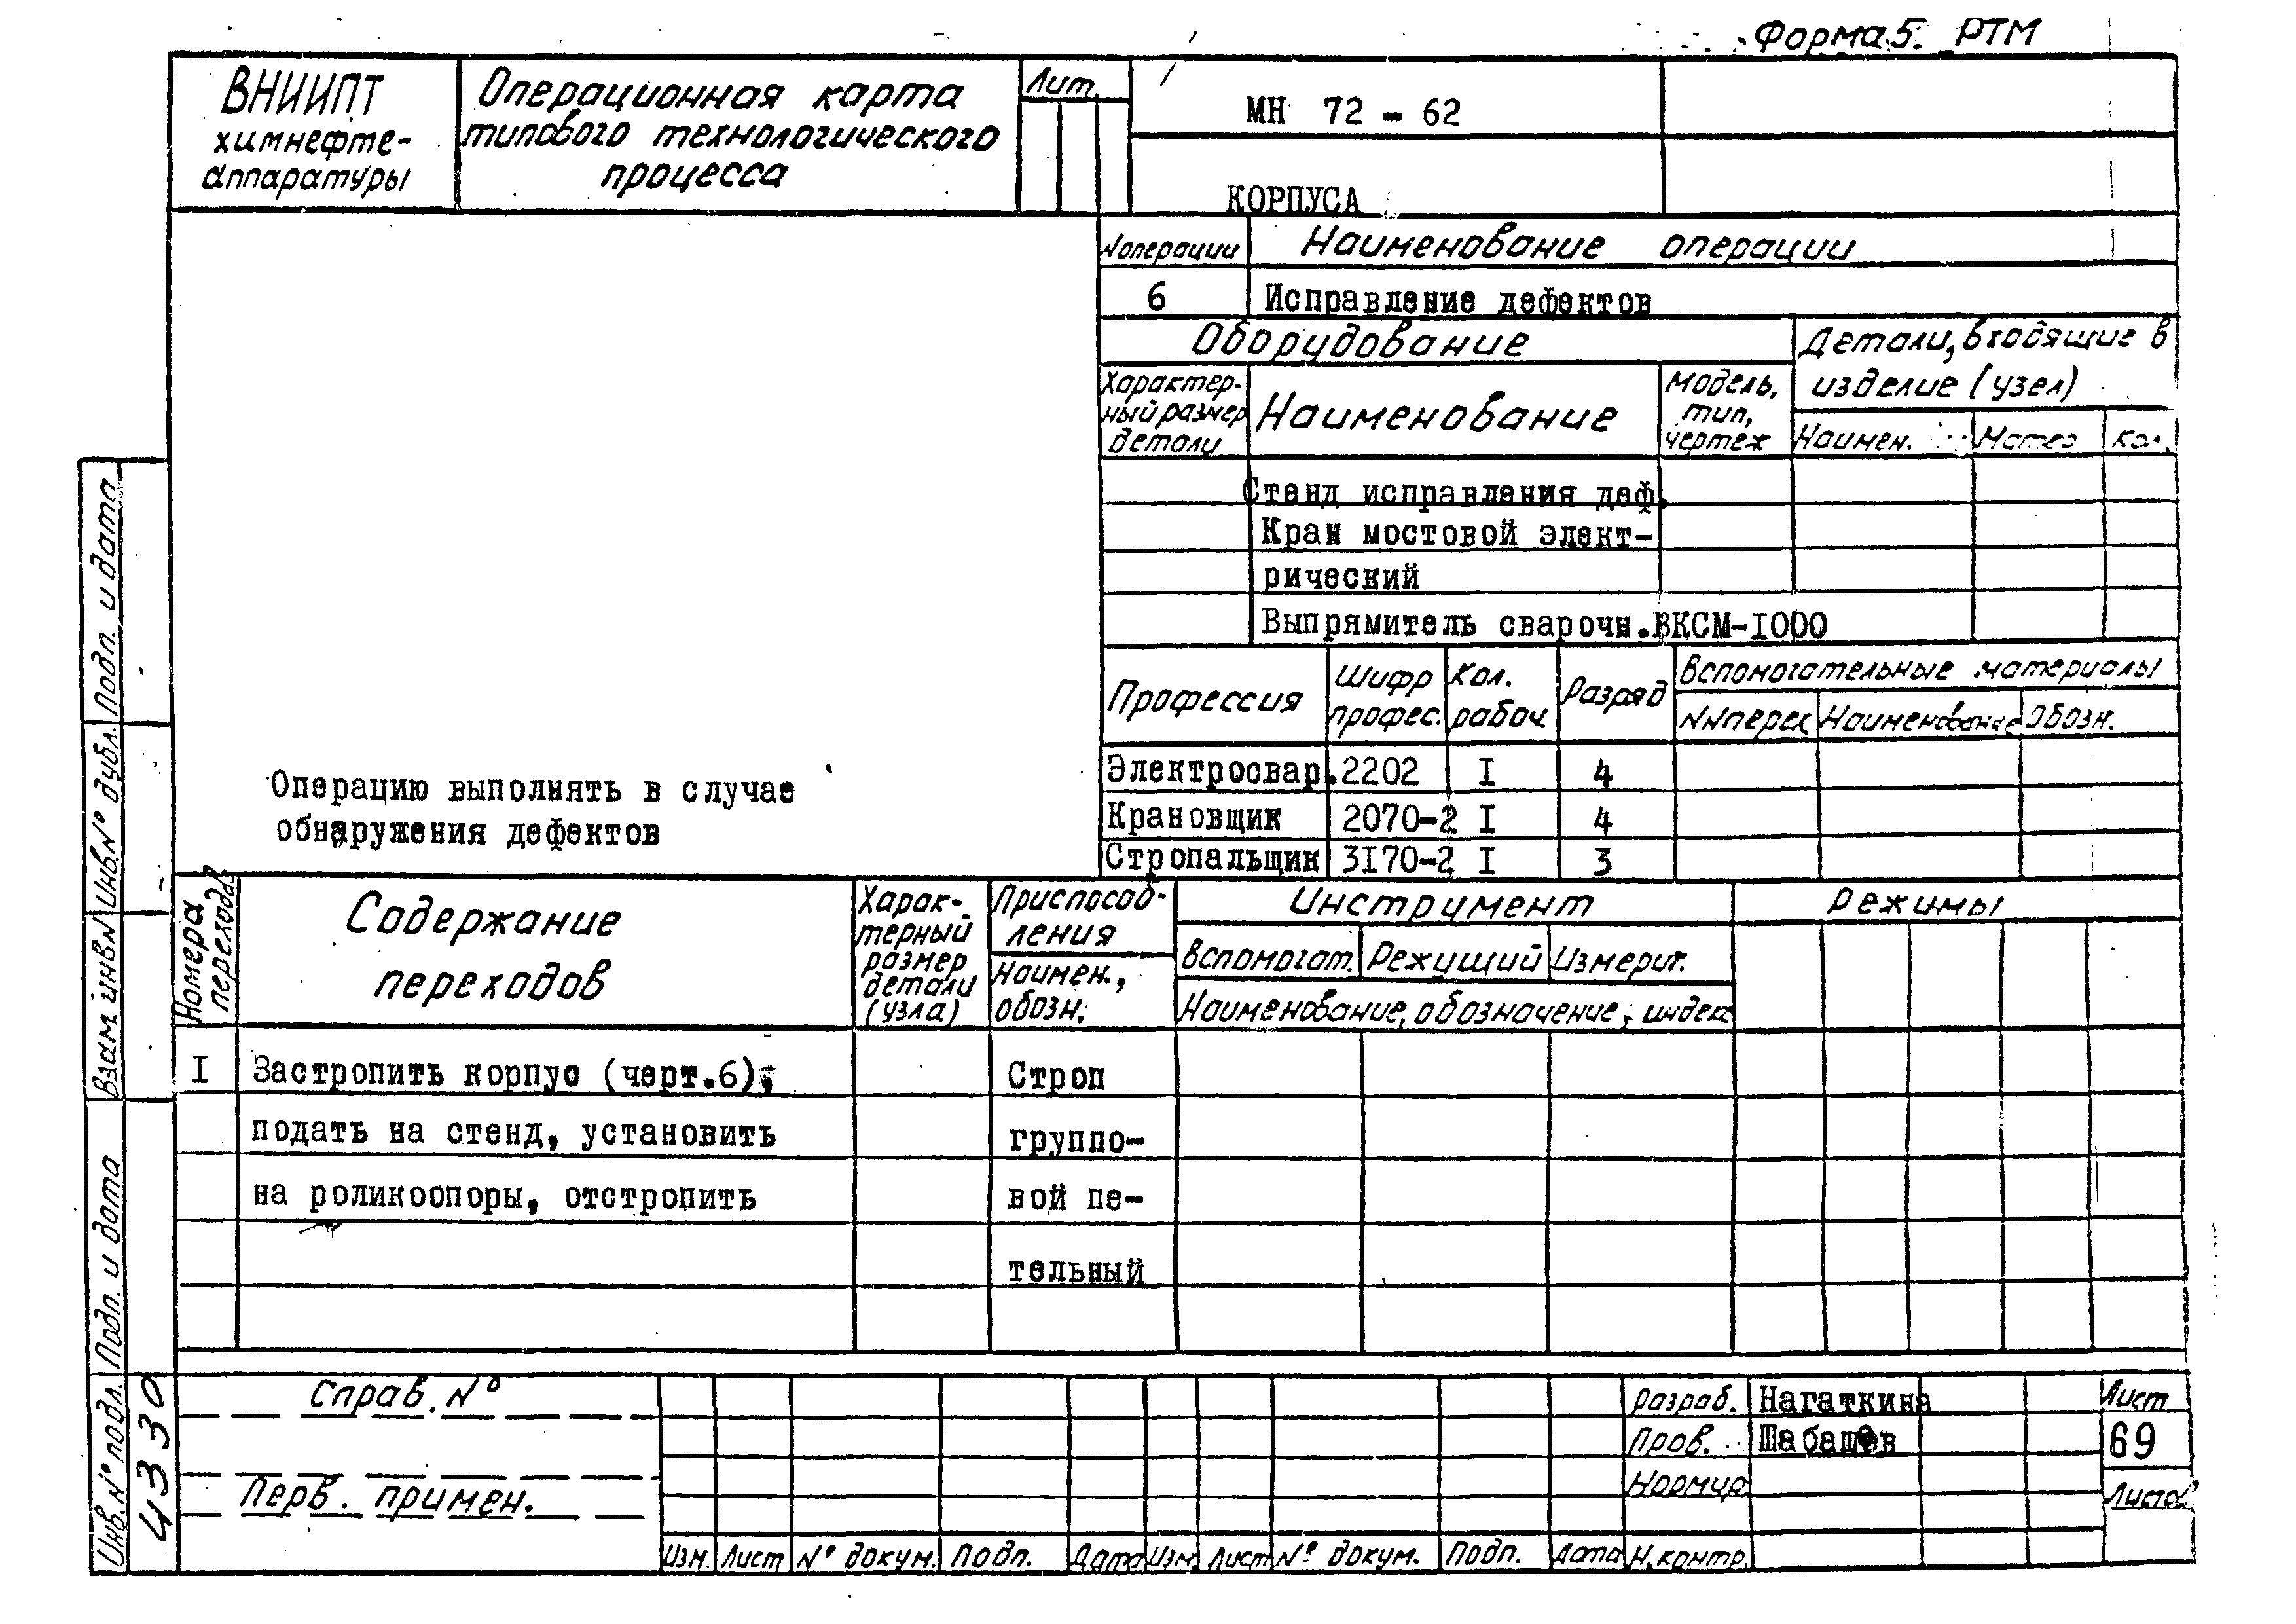 Форма 5. РТМ
ВНИИПТ
химнефте-
аппаратуры
Операционная карта
типового технологического
процесса
Лит.
МН 72 - 62
КОРПУСА
N операции
Наименование операции
6
Исправление дефектов
Оборудование
Детали, входящие в
изделие (узел)
Характер-
ный размер
детали
Наименование
Модель,
тип,
чертеж
Наимен.
Матер
Кол.
Стенд исправления деф.
Кран мостовой элект-
рический
Выпрямитель сварочн. ВКСМ-I000
Профессия
Шифр
профес.
Кол.
рабоч.
Разряд
Вспомогательные материалы
NNперех
Наименование
Обозн.
Электросвар. 2202 I 4
Крановщик 2070-2 I 4
Стропальщик 3I70-2 I 3
Операцию выполнять в случае
обнаружения дефектов
Номера
переходов
Содержание
переходов
Харак-
терный
размер
детали
(узла)
Приспособ-
ления
Наимен.,
обозн.
Инструмент
Вспомогат.
Режущий
Измерит.
Наименование, обозначение, индекс
Режимы
I
Застропить корпус (черт.6),
подать на стенд, установить
на роликоопоры, отстропить
Строп
группо-
вой пе-
тельный
Подп. и дата
Инв.N° дубл.
Взам инвN
Подп. и дата
Инв.N° подл.
4330
Справ. N°
Перв. примен.
Изм. Лист N° докум. Подп. Дата Изм Лист N° докум. Подп. Дата
Разраб. Нагаткина
Пров. Шабашов
Нормир.
Н.контр.
Лист
69
Листов